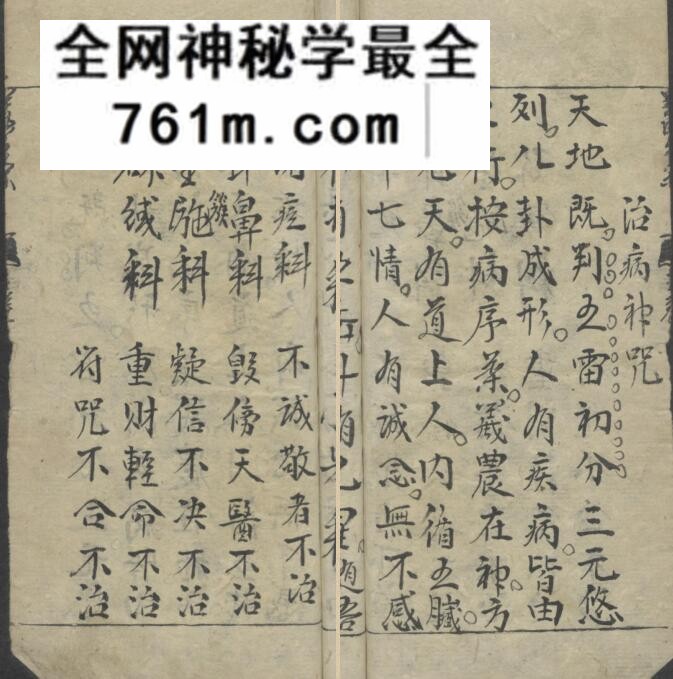 全网神秘学最全
761m.com
治病神咒
天地既判五雷初分三元悠
列八卦成形人有疾病皆由
行按病序藥羲農在神方
天有道上人内脩五臟
七情人有誠念無不感
科 不誠敬者不治
鼻科 毁傍天醫不治
科 疑信不决不治
缄科 重财輕命不治
符咒不合不治